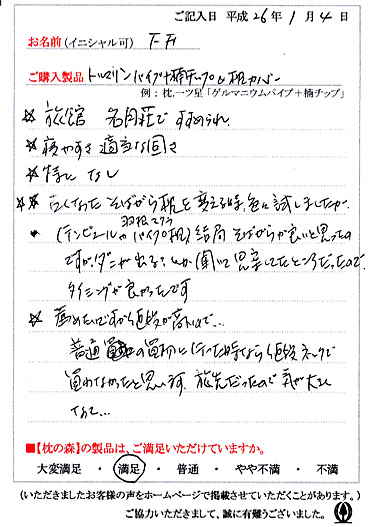 ご記入日 平成 26年 1月 4日
お名前(イニシャル可) F.F
ご購入製品 トルマリンパイプ+楠チップ&枕カバー
例：枕.一ツ星「ゲルマニウムパイプ+楠チップ」
☆ 旅館 名月荘で すすめられ.
☆ 寝やすさ 適当な固さ
☆ 特に なし
☆☆ 古くなった そばがら枕を 変える時、色々試しましたが、
羽根まくら
(テンピュールや パイプ枕) 結局 そばがらが良いと思ったの
ですが、ダニが出る?とか 聞いて 思案してたところだったので
タイミングが良かったです
☆ 薦めたいですが 値段が高いので...
普通 の買物に行った時なら 値段 ネックで
買わなかったと思います. 旅先だったので 気が大きく
なって...
■【枕の森】の製品は、ご満足いただけていますか。
大変満足 ・ 満足 ・ 普通 ・ やや不満 ・ 不満
(いただきましたお客様の声をホームページで掲載させていただくことがあります。)
ご協力いただきまして、誠に有難うございました。